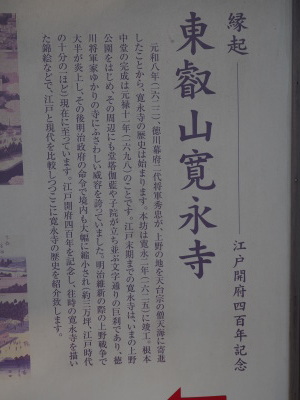 縁起――江戸開府四百年記念
東叡山寛永寺
元和八年(一六二二)、徳川幕府二代将軍秀忠が、上野の地を天台宗の僧天海に寄進
したことから、寛永寺の歴史は始まります。本坊は寛永二年(一六二五)に竣工。根本
中堂の完成は元禄十一年(一六九八)のことです。江戸末期までの寛永寺は、いまの上野
公園をはじめ、その周辺にも堂塔伽藍や子院が立ち並ぶ文字通りの巨刹であり、徳
川将軍家ゆかりの寺にふさわしい威容を誇っていました。明治維新の際の上野戦争で
大半が炎上し、その後明治政府の命令で境内も大幅に縮小され(約三万坪、江戸時代
の十分の一ほど)現在に至っています。江戸開府四百年を記念し、往時の寛永寺を描い
た錦絵などで、江戸と現代を比較しつつここに寛永寺の歴史を紹介致します。